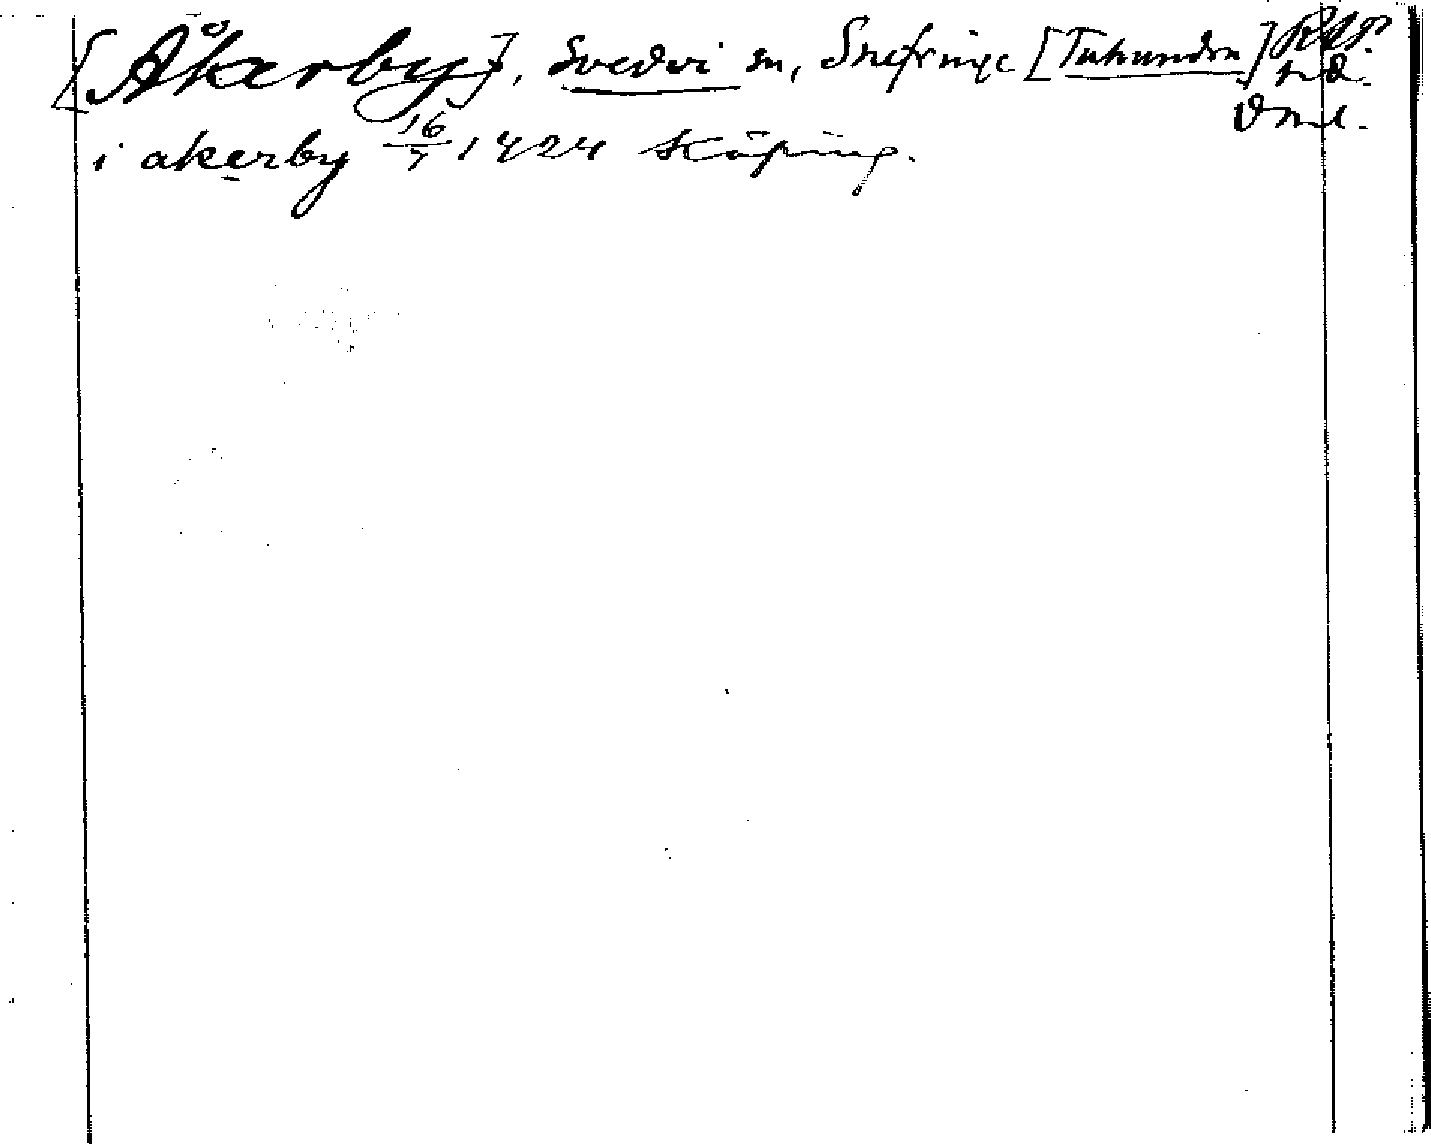 [Åkerby], Svedvi sn, Snefringe [Tuhundra] RAP.
nd.
Vml.
i akerby 16/7 1424 Köping.